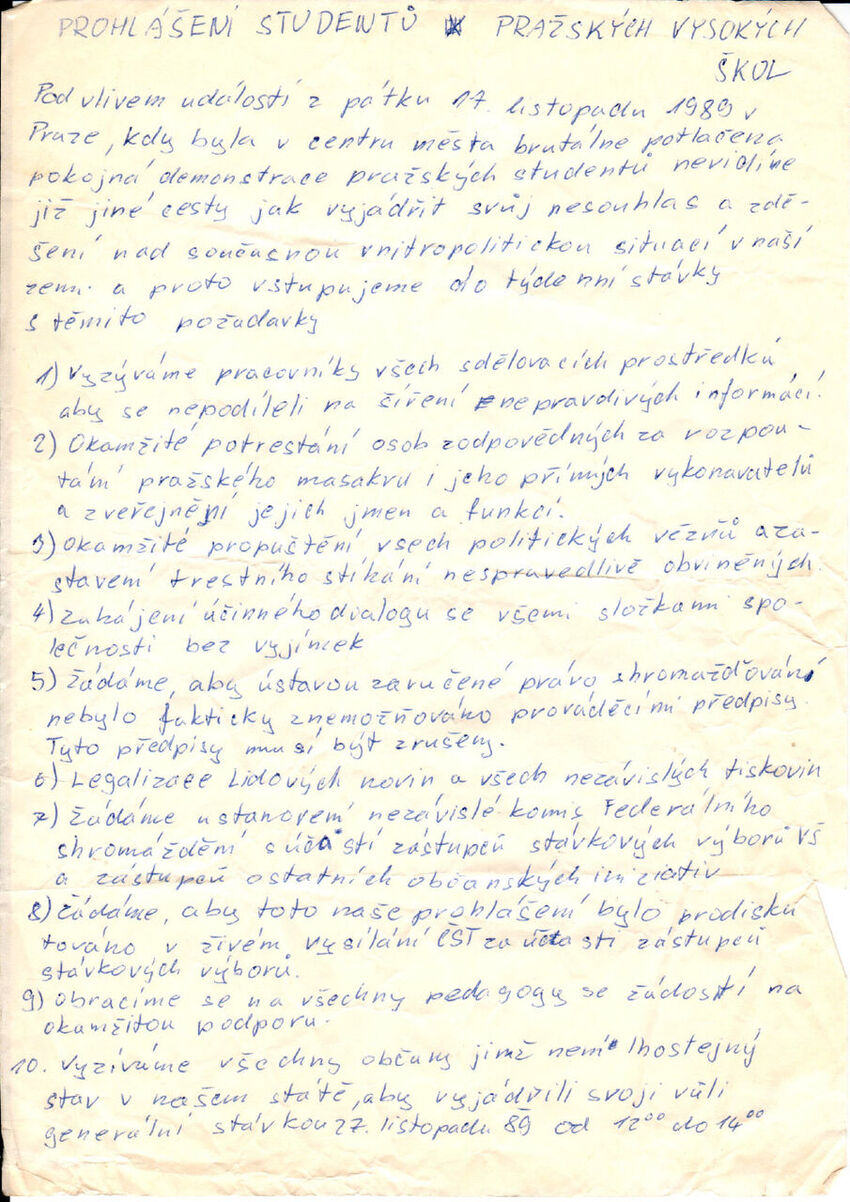 PROHLÁŠENÍ STUDENTŮ PRAŽSKÝCH VYSOKÝCH
ŠKOL
Pod vlivem událostí z pátku 17. listopadu 1989 v
Praze, kdy byla v centru města brutálne potlačena
pokojná demonstrace pražských studentů nevidíme
již jiné cesty jak vyjádřit svůj nesouhlas a zdě-
šení nad současnou vnitropolitickou situací v naší
zemi a proto vstupujeme do týdenní stávky
s těmito požadavky
1) Vyzýváme pracovníky všech sdělovacích prostředků,
aby se nepodíleli na šíření nepravdivých informácí.
2) Okamžité potrestání osob zodpovědných za rozpou-
tání pražského masakru i jeho přímých vykonavatelů
a zveřejnění jejich jmen a funkcí.
3) Okamžité propuštění vsech politických vězňů a za-
stavení trestního stíhání nespravedlivě obviněných.
4) zahájení účinného dialogu se všemi složkami spo-
lečnosti bez vyjímek
5) Žádáme, aby ústavou zaručené právo shromažďování
nebylo fakticky znemožňováno prováděcími předpisy.
Tyto předpisy musí být zrušeny.
6) Legalizace Lidových novin a všech nezávislých tiskovin
7) Žádáme ustanovení nezávislé komis Federálního
shromáždění s účastí zástupců stávkových výborů VŠ
a zástupců ostatních občanských iniziativ
8) Žádáme, aby toto naše prohlášení bylo prodisku
továno v živém vysílání ČST za účasti zástupců
stávkových výborů.
9) Obracíme se na všechny pedagogy se žádostí na
okamžitou podporu.
10. Vyzíváme všechny občany jimž není lhostejný
stav v našem státě, aby vyjádřili svoji vůli
generální stávkou 27. listopadu 89 od 12⁰⁰ do 14⁰⁰